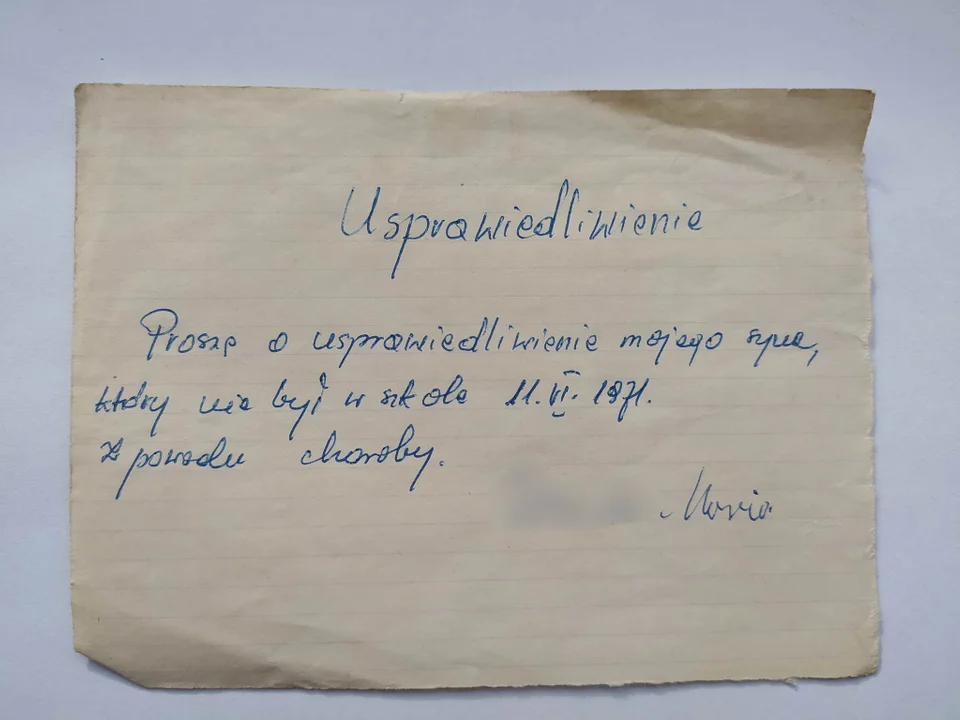 Usprawiedliwienie
Proszę o usprawiedliwienie mojego syna,
który nie był w szkole 11. VI. 1971.
z powodu choroby.
Maria